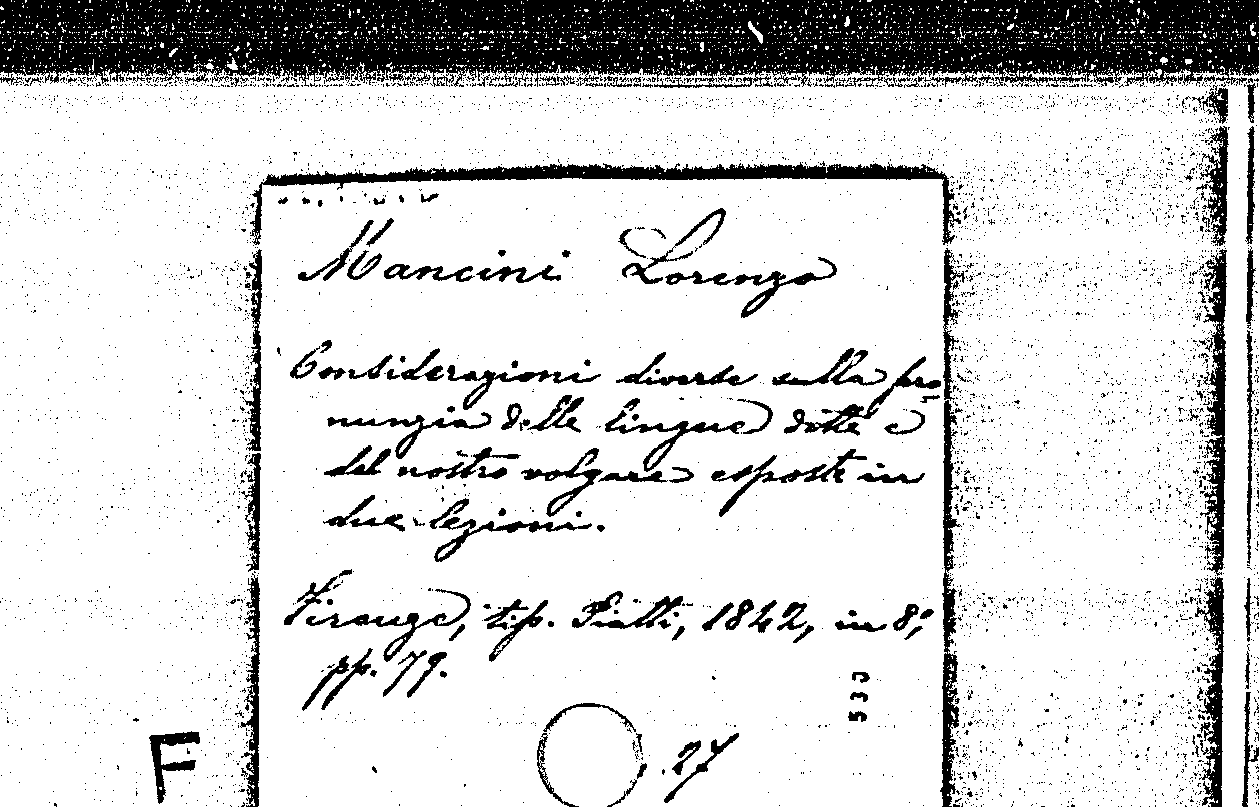 Mancini Lorenzo
Considerazioni diverse sulla pro-
nunzia delle lingue dotte e
del nostro volgare esposte in
due lezioni.
Firenze, tip. Piatti, 1842, in 8°,
pp. 79.
533
27
F